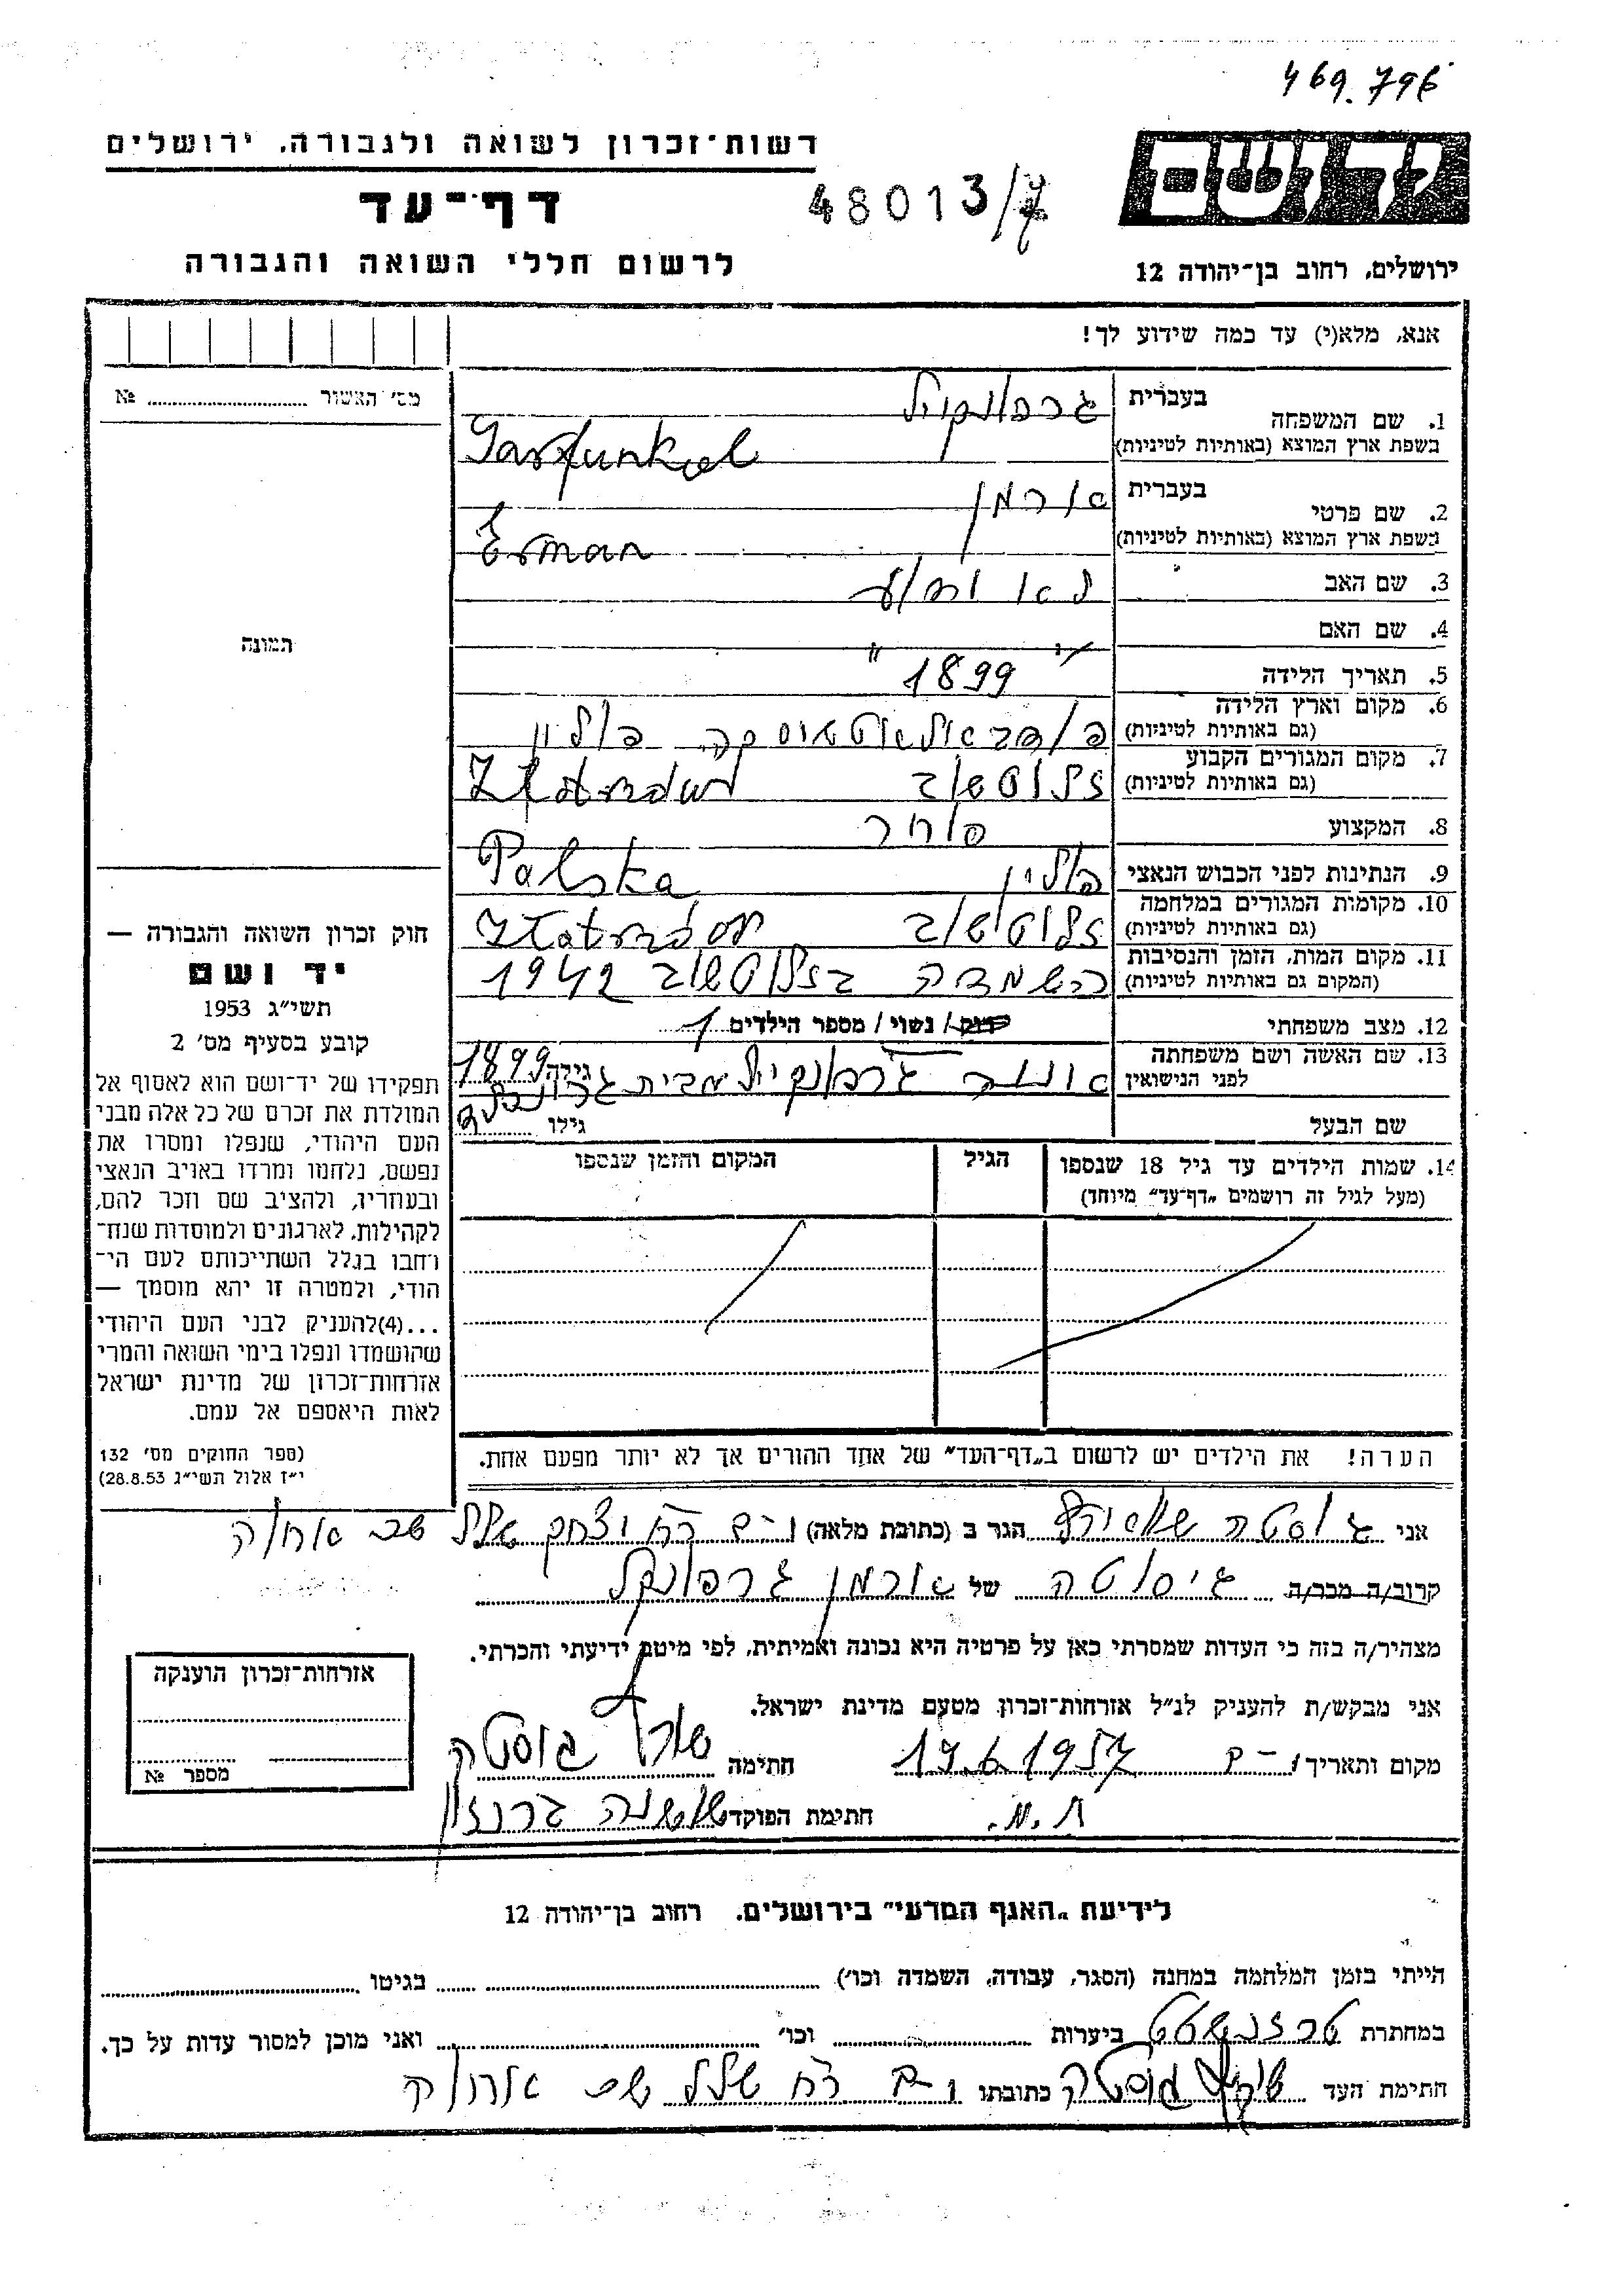 469.796
רשות־זכרון לשואה ולגבורה, ירושלים
יד ושם
דף־עד
48013/7
לרשום חללי השואה והגבורה
ירושלים, רחוב בן־יהודה 12
אנא, מלא(י) עד כמה שידוע לך!
מס׳ האשור № 
1. שם המשפחה בעברית גרפונקיל
בשפת ארץ המוצא (באותיות לטיניות) Garfunkiel
2. שם פרטי בעברית אורמן
בשפת ארץ המוצא (באותיות לטיניות) Erman
3. שם האב
4. שם האם
תמונה
5. תאריך הלידה 1899
6. מקום וארץ הלידה פולין
(גם באותיות לטיניות)
7. מקום המגורים הקבוע זלוטשוב
(גם באותיות לטיניות)
8. המקצוע סוחר
9. הנתינות לפני הכבוש הנאצי פולין Polska
10. מקומות המגורים במלחמה זלוטשוב
(גם באותיות לטיניות)
11. מקום המות, הזמן והנסיבות השמדה בזלוטשוב 1942
(המקום גם באותיות לטיניות)
12. מצב משפחתי רווק / נשוי / מספר הילדים 1
13. שם האשה ושם משפחתה גרפונקיל מבית גילה 1899
לפני הנישואין
שם הבעל גילו
14. שמות הילדים עד גיל 18 שנספו הגיל המקום והזמן שנספו
(מעל לגיל זה רושמים „דף־עד״ מיוחד)
חוק זכרון השואה והגבורה —
יד ושם
תשי״ג 1953
קובע בסעיף מס׳ 2
תפקידו של יד־ושם הוא לאסוף אל
המולדת את זכרם של כל אלה מבני
העם היהודי, שנפלו ומסרו את
נפשם, נלחמו ומרדו באויב הנאצי
ובעוזריו, ולהציב שם וזכר להם,
לקהילות, לארגונים ולמוסדות שנח־
רחבו בגלל השתייכותם לעם הי־
הודי, ולמטרה זו יהא מוסמך —
...(4)להעניק לבני העם היהודי
שהושמדו ונפלו בימי השואה והמרי
אזרחות־זכרון של מדינת ישראל
לאות היאספם אל עמם.
(ספר החוקים מס׳ 132
י״ז אלול תשי״ג 28.8.53)
הערה! את הילדים יש לרשום ב„דף־העד״ של אחד ההורים אך לא יותר מפעם אחת.
אני גוסטה הגר ב (כתובת מלאה)
קרוב/ה מכר/ה גיסוטה של אורמן גרפונקל
מצהיר/ה בזה כי העדות שמסרתי כאן על פרטיה היא נכונה ואמיתית, לפי מיטב ידיעתי והכרתי.
אני מבקש/ת להעניק לנ״ל אזרחות־זכרון מטעם מדינת ישראל.
אזרחות־זכרון הוענקה
מספר №
מקום ותאריך י־ם 17.6.1957 חתימה גוסטה
חתימת הפוקד שושנה ברנזון
לידיעת „האגף המדעי״ בירושלים, רחוב בן־יהודה 12
הייתי בזמן המלחמה במחנה (הסגר, עבודה, השמדה וכו׳) בגיטו
במחתרת ביערות וכו׳ ואני מוכן למסור עדות על כך.
חתימת העד גוסטה כתובתו י־ם